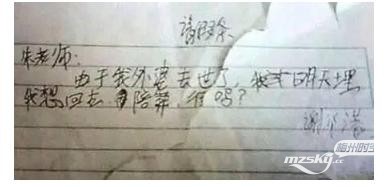 请假条
朱老师:
由于我外婆去世了,我 明天埋
我想回去 陪葬,行吗?
谢
梅州时空
mzsky.cc